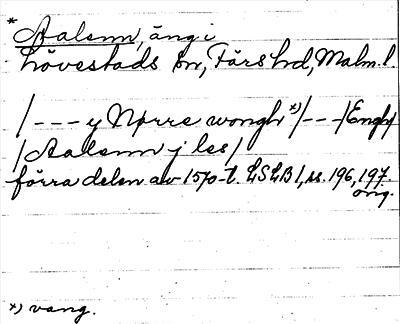 * Aalsnn, äng i
Lövestads sn, Färs hd, Malm. l.
/ - - - y Nørre wongh *) / - - - / Engh /
/ Aalsnn j les /
förra delen av 1570-t. LSLB 1, ss. 196, 197.
orig.
*) vang.